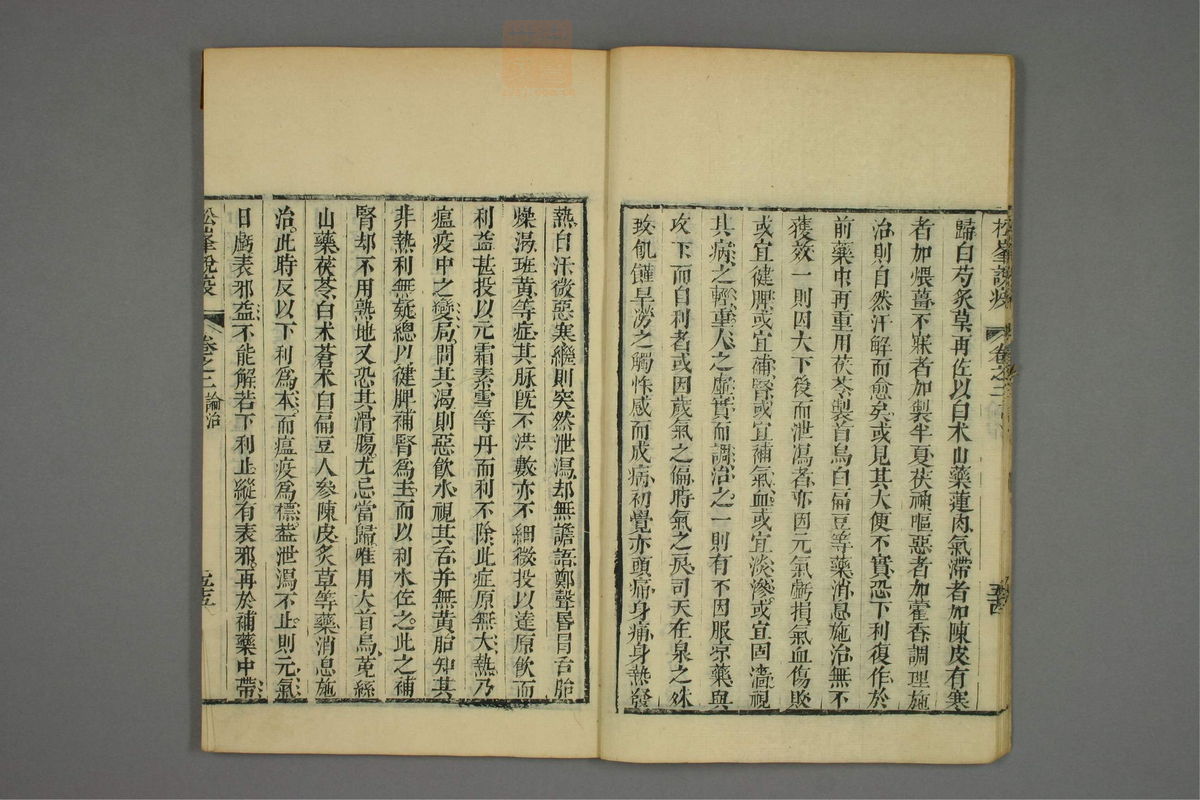 松峯說疫 卷之二 五四
歸白芍炙草再佐以白朮山藥蓮肉氣滯者加陳皮有寒
者加煨薑不寐者加製半夏茯神嘔惡者加藿香調理施
治則自然汗解而愈矣或見其大便不實恐下利復作於
前藥中再重用茯苓製首烏白扁豆等藥消息施治無不
獲效一則因大下後而泄瀉者亦因元氣虧損氣血傷敗
或宜健脾或宜補腎或宜補氣血或宜淡滲或宜固濇視
其病之輕重人之虛實而調治之一則有不因服凉藥與
攻下而自利者或因歲氣之偏時氣之戾司天在泉之殊
致飢饉旱澇之觸忤感而成病初覺亦頭痛身痛身熱發
熱自汗微惡寒繼則突然泄瀉却無譫語鄭聲昏冒舌胎
燥渴班黃等症其脉旣不洪數亦不細微投以達原飮而
利益甚投以元霜素雪等丹而利不除此症原無大熱乃
瘟疫中之變局問其渴則惡飮水視其舌并無黃胎知其
非熱利無疑總以健脾補腎爲主而以利水佐之此之補
腎却不用熟地又恐其滑膓尤忌當歸唯用大首烏莵絲
山藥茯苓白朮蒼朮白扁豆人參陳皮炙草等藥消息施
治此時反以下利爲本而瘟疫爲標葢泄瀉不止則元氣
日虧表邪益不能解若下利止縱有表邪再於補藥中帶
松峯說疫 卷之二 論治 五五